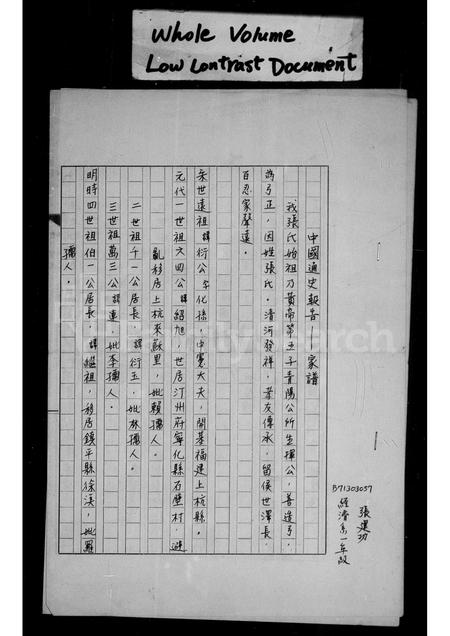 Whole Volume
Low Contrast Document
B71303057
張建功
經濟系一年級
中國通史報告 家譜
我張氏始祖乃黃帝第五子青陽公所生揮公,善造弓,
為弓正,因姓張氏。清河發祥,孝友傳承,留侯世澤長,
百忍家聲遠。
宋世遠祖諱衍公字化孫,中憲大夫,開基福建上杭縣。
元代一世祖文四公諱紹旭,世居汀州府寧化縣石壁村,避
亂移居上杭來蘇里,妣賴孺人。
二世祖千一公居長,諱衍五,妣林孺人。
三世祖萬三公諱連,妣李孺人。
明時四世祖伯一公居長,諱繼祖,移居鎮平縣徐溪,妣羅
孺人。
FamilySearch